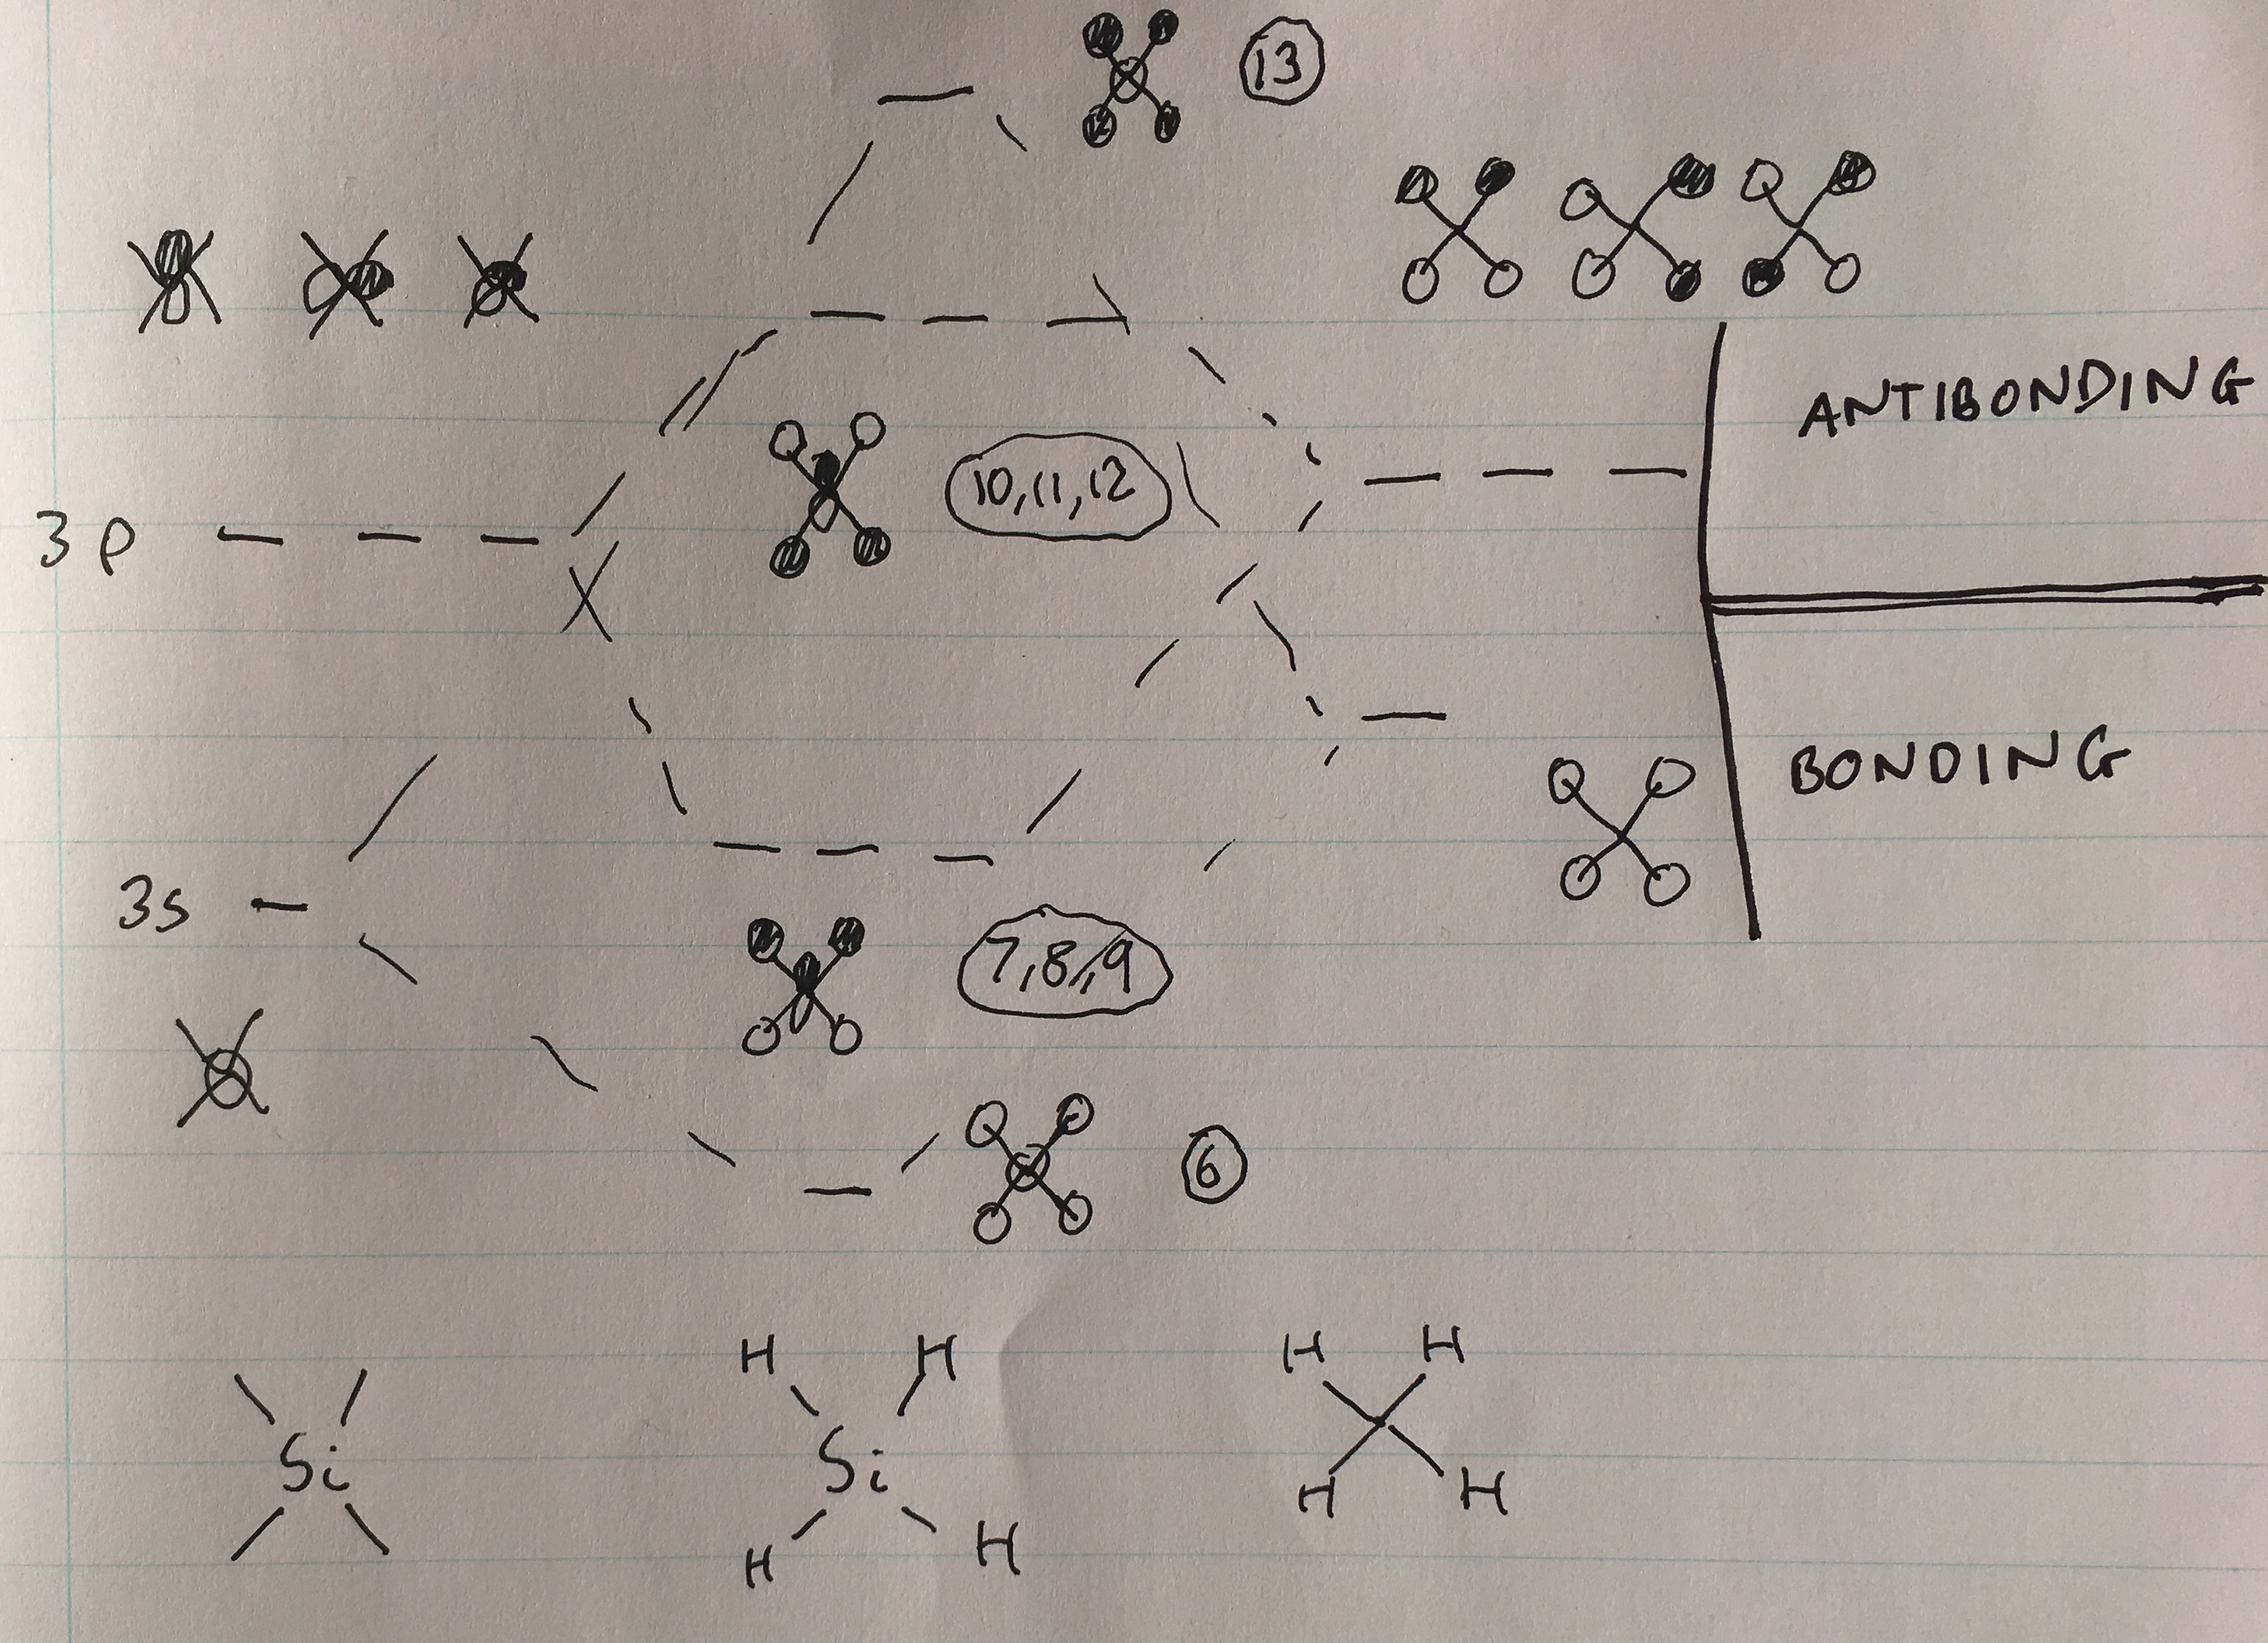 13
ANTIBONDING
3p
10,11,12
BONDING
3s
7,8,9
6
H H
H H
Si
Si
H H
H H